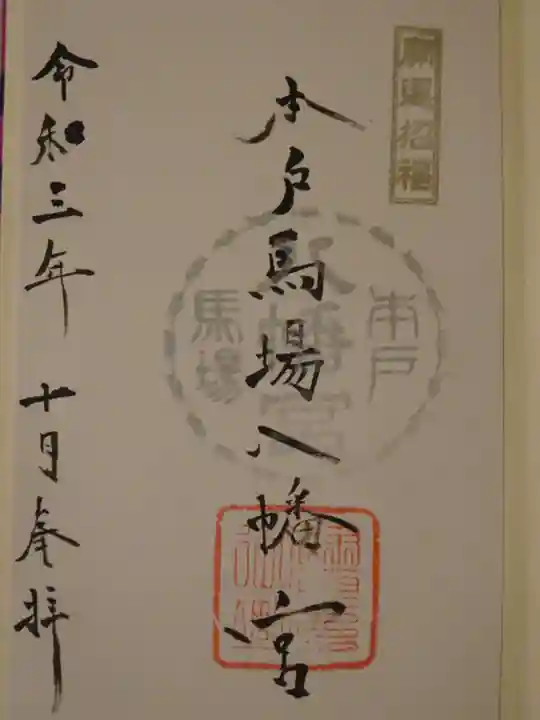 招福
本戸
八幡宮
馬場
本戸馬場八幡宮
令和三年 十月奉拝